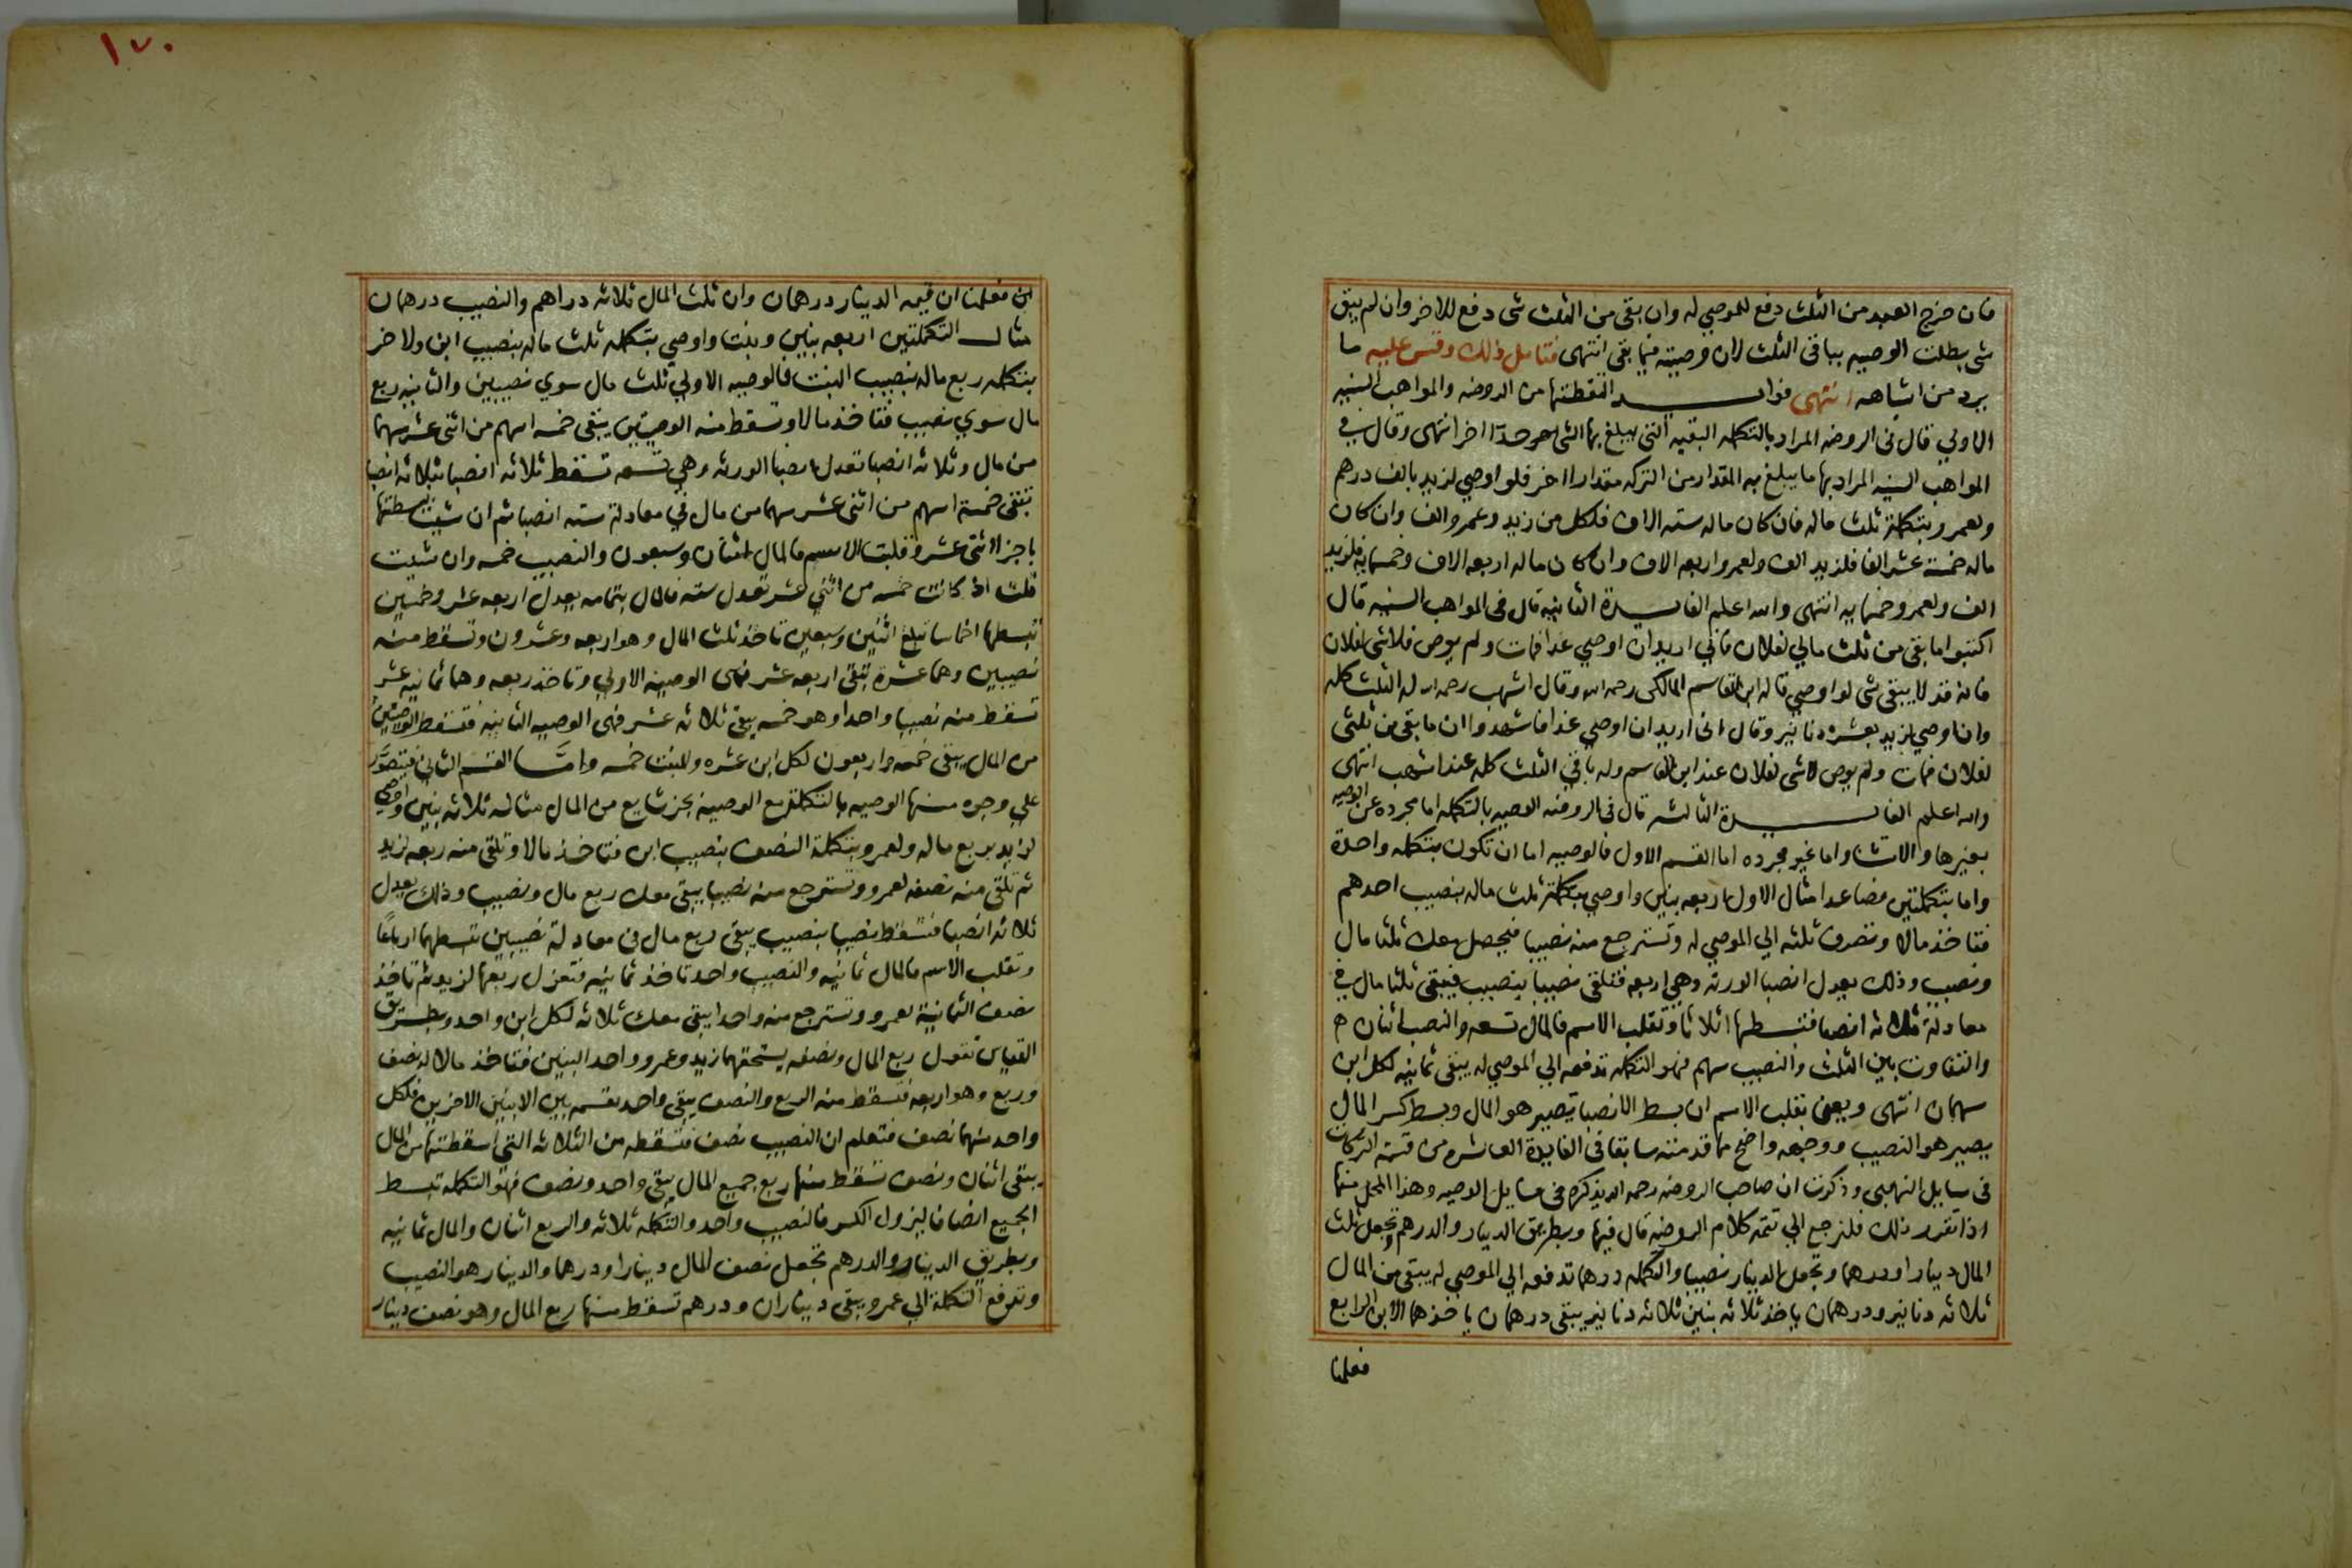 فان خرج العبد من الثلث دفع للموصي له وان بقى من الثلث شى دفع للاخر وان لم يبق
شى بطلت الوصيه بباقى الثلث لان وصيته فيما بقى انتهى فتامل ذلك وقس عليه ما
يرد من اشباهه انتهى فوايد التقطتها من الروضه والمواهب السنيه
الاولي قال فى الروضه المراد بالتكمله البقيه التى يبلغ بها الشى حدا اخر انتهى وقال في
المواهب السنيه المراد بها ما يبلغ به المقدار من التركه مقدارا اخر فلو اوصي لزيد بالف درهم
ولعمرو بتكملة ثلث ماله فان كان ماله سته الاف فلكل من زيد وعمرو الف وان كان
ماله خمسة عشر الفا فلزيد الف ولعمرو اربعه الاف وان كان ماله اربعه الاف وخمسمايه فلزيد
الف ولعمرو خمسمايه انتهى والله اعلم الفايدة الثانيه قال فى المواهب السنيه قال
اكتبوا ما بقى من ثلث مالي لفلان فاني اريد ان اوصي غدا فمات ولم يوص فلا شى لفلان
فانه قد لا يبقى شى لو اوصي قاله ابن القاسم المالكى رحمه الله وقال اشهب رحمه الله له الثلث كله
وان اوصي لزيد بعشره دنانير وقال انى اريد ان اوصي غدا فاشهدوا ان ما بقى من ثلثى
لفلان فمات ولم يوص لا شى لفلان عند ابن القاسم وله باقي الثلث كله عند اشهب انتهى
والله اعلم الفايدة الثالثه قال فى الروضه الوصيه بالتكمله اما مجرده عن الوصيه
بغيرها والاستثنا واما غير مجرده اما القسم الاول فالوصيه اما ان تكون بتكمله واحدة
واما بتكملتين فصاعدا مثال الاول اربعه بنين واوصي بتكملة ثلث ماله بنصيب احدهم
فتاخذ مالا وتصرف ثلثه الي الموصي له وتسترجع منه نصيبا فيحصل معك ثلثا مال
ونصيب وذلك يعدل انصبا الورثه وهي اربعه فتلقى نصيبا بنصيب فيبقى ثلثا مال في
معادلة ثلاثه انصبا فتبسطها اثلاثا وتقلب الاسم فالمال تسعه والنصيب اثنان
والتفاوت بين الثلث والنصيب سهم فهو التكمله تدفعه الي الموصي له يبقى ثمانيه لكل ابن
سهمان انتهى ويعنى بقلب الاسم ان بسط الانصبا يصير هو المال وبسط كسر المال
يصير هو النصيب ووجهه واضح مما قدمته سابقا فى الفايدة العاشره من قسمة التركات
فى مسايل النهبى وذكرت ان صاحب الروضه رحمه الله يذكره فى مسايل الوصيه وهذا المحل منها
اذا تقرر ذلك فلنرجع الي تتمة كلام الروضه قال فيها وبطريق الدينار والدرهم تجعل ثلث
المال دينارا ودرهما وتجعل الدينار نصيبا والتكمله درهما تدفعه الي الموصي له يبقى من المال
ثلاثه دنانير ودرهمان ياخذ ثلاثه بنين ثلاثه دنانير يبقى درهمان ياخذهما الابن الرابع
فعلمنا
١٧٠
فعلمنا ان قيمه الدينار درهمان وان ثلث المال ثلاثه دراهم والنصيب درهمان
مثال التكملتين اربعه بنين وبنت واوصي بتكمله ثلث ماله بنصيب ابن ولاخر
بتكمله ربع ماله بنصيب البنت فالوصيه الاولي ثلث مال سوي نصيبين والثانيه ربع
مال سوي نصيب فتاخذ مالا وتسقط منه الوصيتين يبقى خمسه اسهم من اثنى عشر سهما
من مال وثلاثه انصبا تعدل انصبا الورثه وهي تسعه تسقط ثلاثه انصبا بثلاثه انصبا
تبقى خمسة اسهم من اثنى عشر سهما من مال في معادلة سته انصبا ثم ان شيت بسطتها
باجزا اثنى عشر وقلبت الاسم فالمال اثنان وسبعون والنصيب خمسه وان شيت
قلت اذا كانت خمسه من اثني عشر تعدل سته فالمال بتمامه يعدل اربعه عشر وخمسين
تبسطها اخماسا تبلغ اثنين وسبعين تاخذ ثلث المال وهو اربعه وعشرون وتسقط منه
نصيبين وهما عشرة يبقى اربعه عشر فهى الوصيه الاولي وتاخذ ربعه وهما ثمانيه عشر
تسقط منه نصيبا واحدا وهو خمسه يبقى ثلاثه عشر فهى الوصيه الثانيه فتسقط الوصيتين
من المال يبقى خمسه واربعون لكل ابن عشره وللبنت خمسه وامَّا القسم الثانى فيتصوَّر
علي وجوه منها الوصيه بالتكمله مع الوصيه بجز شايع من المال مثاله ثلاثه بنين واوصي
لزيد بربع ماله ولعمرو بتكملة النصف بنصيب ابن فتاخذ مالا وتلقى منه ربعه لزيد
ثم تلقى منه نصفه لعمرو وتسترجع منه نصيبا يبقى معك ربع مال ونصيب وذلك يعدل
ثلاثه انصبا فتسقط نصيبا بنصيب يبقى ربع مال فى معادلة نصيبين تبسطهما ارباعًا
وتقلب الاسم فالمال ثمانيه والنصيب واحد تاخذ ثمانيه فتعزل ربعها لزيد ثم تاخذ
نصف الثمانية لعمرو وتسترجع منه واحدا يبقى معك ثلاثه لكل ابن واحد وبطريق
القياس تقول ربع المال ونصفه يستحقهما زيد وعمرو واحد البنين فتاخذ مالا له نصف
وربع وهو اربعه فتسقط منه الربع والنصف يبقى واحد تقسمه بين الابنين الاخرين فلكل
واحد منهما نصف فتعلم ان النصيب نصف فتسقطه من الثلاثه التى اسقطتها من المال
يبقى اثنان ونصف تسقط منها ربع جميع المال يبقى واحد ونصف فهو التكمله تبسط
الجميع انصافا ليزول الكسر فالنصيب واحد والتكمله ثلاثه والربع اثنان والمال ثمانيه
وبطريق الدينار والدرهم تجعل نصف المال دينارا ودرهما والدينار هو النصيب
وتدفع التكملة الي عمرو يبقى ديناران ودرهم تسقط منها ربع المال وهو نصف دينار